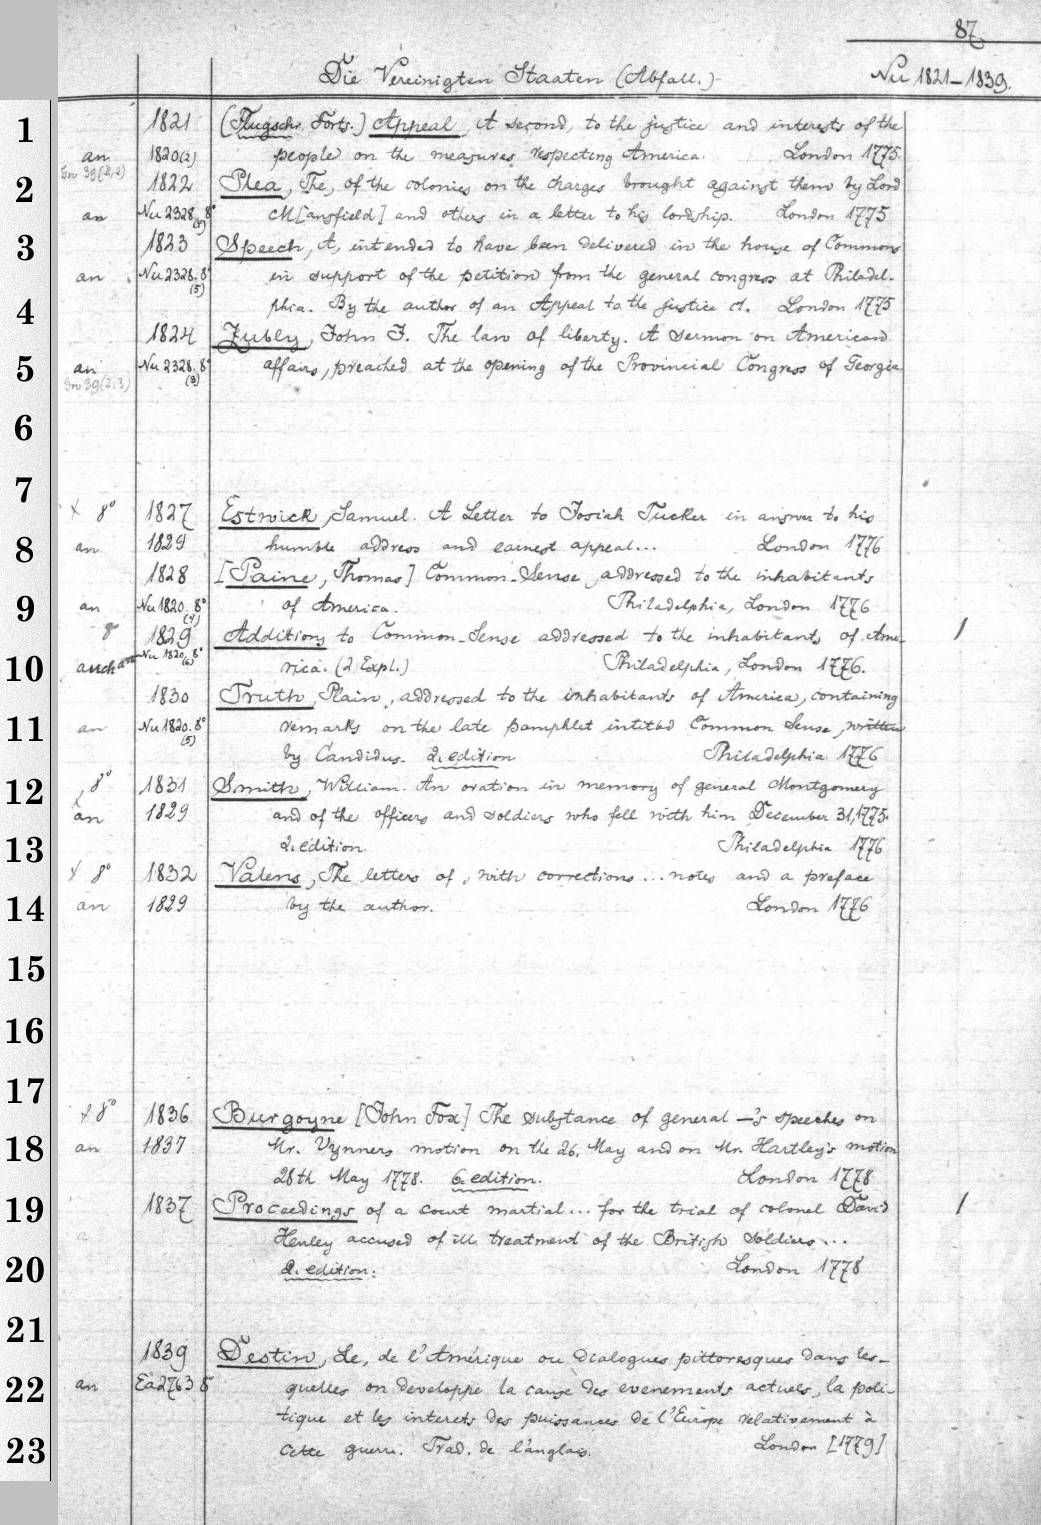 87
Die Vereinigten Staaten (Abfall.)
Nu 1821–1839.
1821 (Flugschr. Forts.) Appeal, A second, to the justice and interests of the
an 1820(2) people on the measures respecting America. London 1775.
1822 Plea, The, of the colonies on the charges brought against them by Lord
an Nu 2328. 8° M[ansfield] and others in a letter to his lordship. London 1775
1823 Speech, A, intended to have been delivered in the house of Commons
an Nu 2328. 8° (5) in support of the petition from the general congress at Philadel-
phia. By the author of an Appeal to the justice ct. London 1775
1824 Zubly, John J. The law of liberty. A sermon on American
an Nu 2328. 8° (3) affairs, preached at the opening of the Provincial Congress of Georgia
+ 8° 1827 Estwick, Samuel. A Letter to Josiah Tucker in answer to his
an 1829 humble address and earnest appeal... London 1776
1828 [Paine, Thomas] Common-Sense, addressed to the inhabitants
an Nu 1820. 8° (4) of America. Philadelphia, London 1776
8° 1829 Additions to Common-Sense addressed to the inhabitants of Ame- 1
auch an Nu 1820. 8° (6) rica. (2 Expl.) Philadelphia, London 1776.
1830 Truth, Plain, addressed to the inhabitants of America, containing
an Nu 1820. 8° (5) remarks on the late pamphlet intitled Common Sense, written
by Candidus. 2. edition Philadelphia 1776
8° 1831 Smith, William. An oration in memory of general Montgomery
+ an 1829 and of the officers and soldiers who fell with him December 31, 1775.
2. edition. Philadelphia 1776
+ 8° 1832 Valens, The letters of, with corrections... notes and a preface
an 1829 by the author. London 1776
+ 8° 1836 Burgoyne [John Fox] The substance of general —'s speeches on
an 1837 Mr. Vynners motion on the 26. May and on Mr. Hartley's motion
28th May 1778. 6. edition. London 1778
1837 Proceedings of a court martial... for the trial of colonel David 1
Henley accused of ill treatment of the British soldiers...
2. edition. London 1778
1839 Destin, Le, de l'Amérique ou dialogues pittoresques dans les-
an Ea 2763 8° quelles on developpe la cause des evenements actuels, la poli-
tique et les interets des puissances de l'Europe relativement à
cette guerre. Trad. de l'anglais. London [1779]
1
2
3
4
5
6
7
8
9
10
11
12
13
14
15
16
17
18
19
20
21
22
23